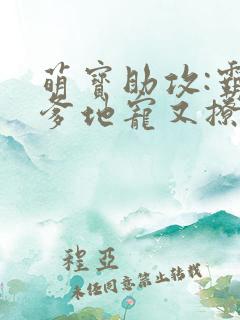 萌宝助攻:霸
爹地宠又撩
程亞
未经同意禁止转载